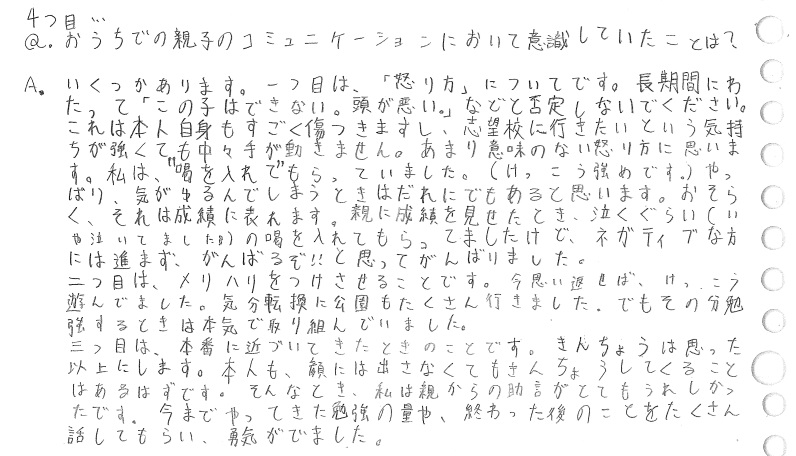 4つ目…
Q. おうちでの親子のコミュニケーションにおいて意識していたことは?
A. いくつかあります。一つ目は、「怒り方」についてです。長期間にわ
たって「この子はできない。頭が悪い。」などと否定しないでください。
これは本人自身もすごく傷つきますし、志望校に行きたいという気持
ちが強くても中々手が動きません。あまり意味のない怒り方に思いま
す。私は、"喝を入れて"もらっていました。(けっこう強めです。)やっ
ぱり、気がゆるんでしまうときはだれにでもあると思います。おそら
く、それは成績に表れます。親に成績を見せたとき、泣くぐらい(い
や泣いてました)の喝を入れてもらってましたけど、ネガティブな方
には進まず、がんばるぞ!!と思ってがんばりました。
二つ目は、メリハリをつけさせることです。今思い返せば、けっこう
遊んでました。気分転換に公園もたくさん行きました。でもその分勉
強するときは本気で取り組んでいました。
三つ目は、本番に近づいてきたときのことです。きんちょうは思った
以上にします。本人も、顔には出さなくてもきんちょうしてくること
はあるはずです。そんなとき、私は親からの助言がとてもうれしかっ
たです。今までやってきた勉強の量や、終わった後のことをたくさん
話してもらい、勇気がでました。